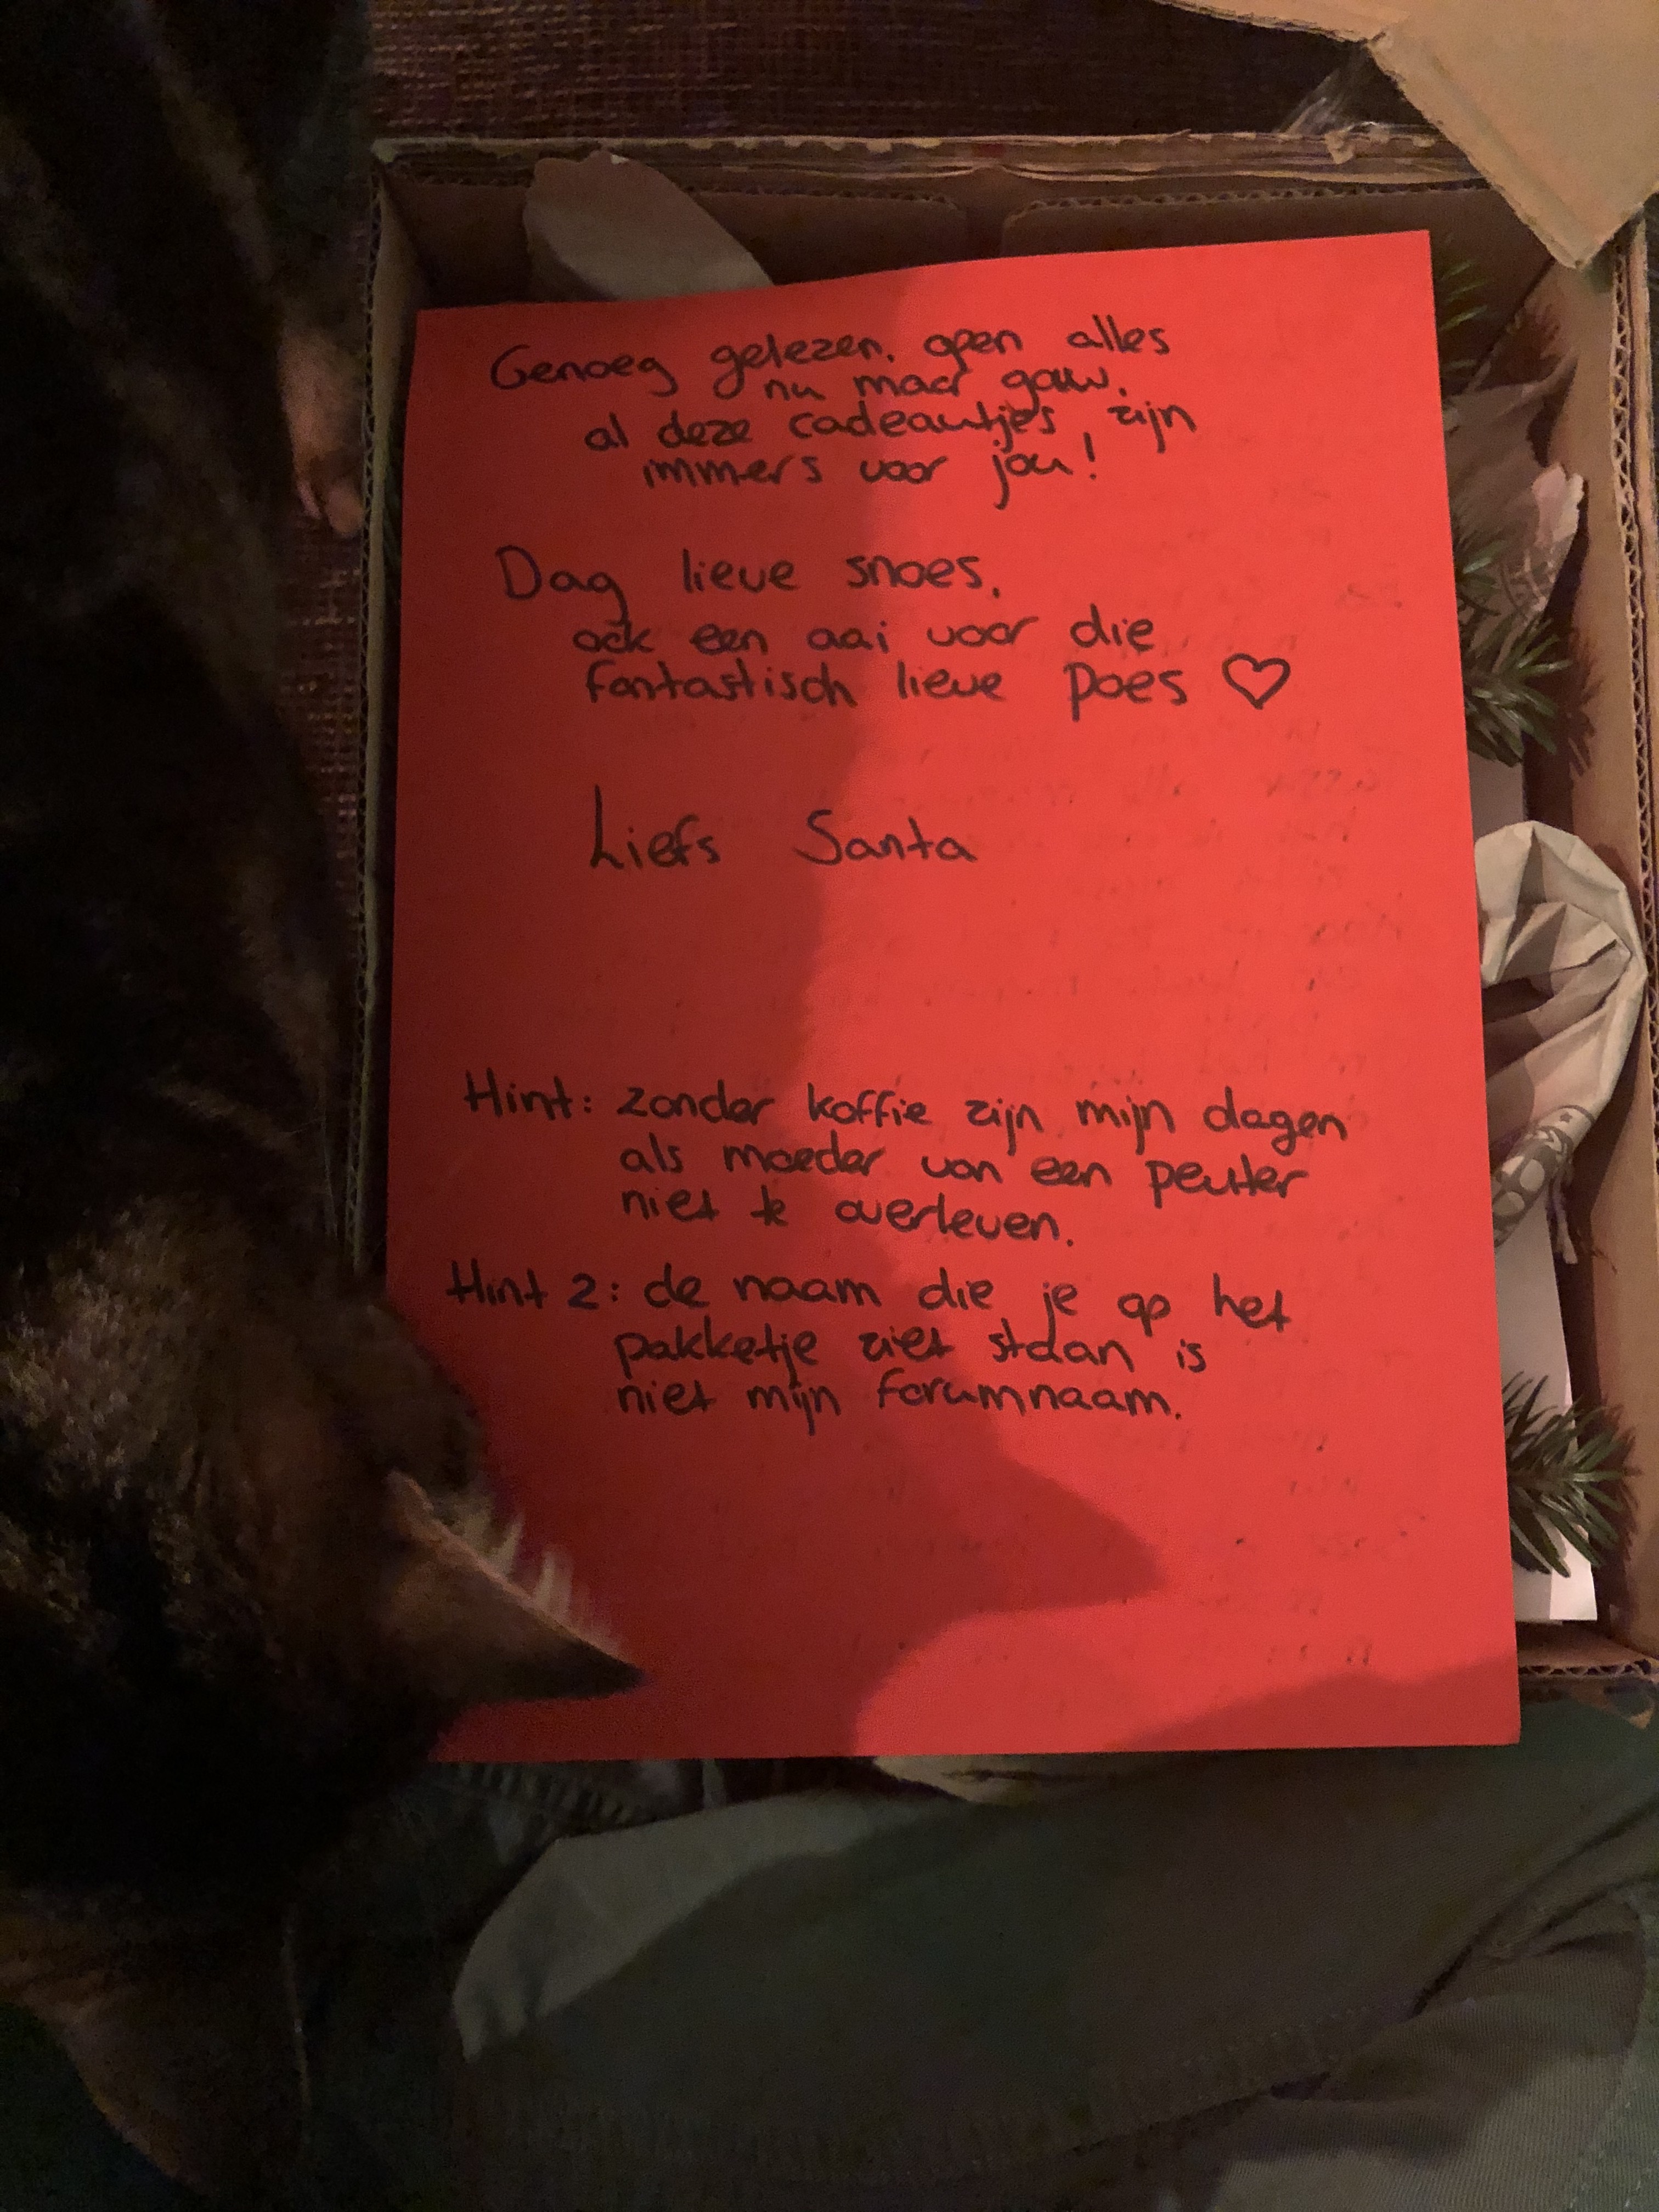 Genoeg gelezen, open alles
nu maar gauw.
al deze cadeautjes zijn
immers voor jou!
Dag lieve snoes,
ook een aai voor die
fantastisch lieve poes ♡
Liefs Santa
Hint: zonder koffie zijn mijn dagen
als moeder van een peuter
niet te overleven.
Hint 2: de naam die je op het
pakketje ziet staan is
niet mijn forumnaam.